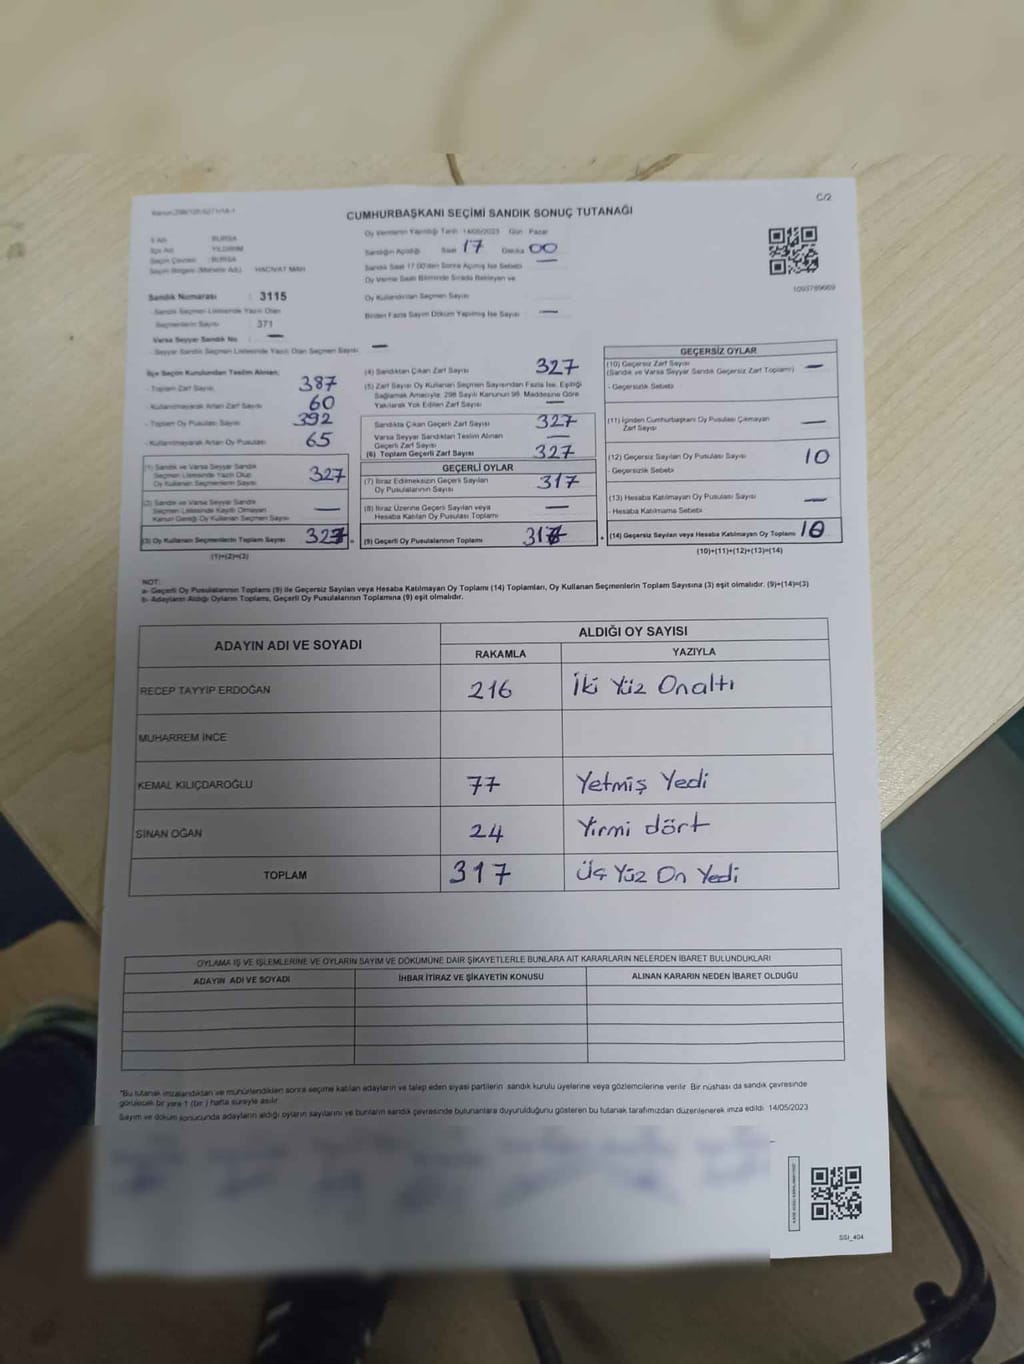 C/2
CUMHURBAŞKANI SEÇİMİ SANDIK SONUÇ TUTANAĞI
İl Adı BURSA
İlçe Adı YILDIRIM
Seçim Çevresi BURSA
Seçim Bölgesi (Mahalle Adı) HACİVAT MAH
Sandık Numarası : 3115
- Sandık Seçmen Listesinde Yazılı Olan
Seçmenlerin Sayısı : 371
Varsa Seyyar Sandık No : —
- Seyyar Sandık Seçmen Listesinde Yazılı Olan Seçmen Sayısı : —
Oy Vermenin Yapıldığı Tarih : 14/05/2023 Gün : Pazar
Sandığın Açıldığı Saat 17 Dakika 00
Sandık Saat 17:00'den Sonra Açılmış İse Sebebi —
Oy Verme Saati Bitiminde Sırada Bekleyen ve
Oy Kullandırılan Seçmen Sayısı
Birden Fazla Sayım Döküm Yapılmış İse Sayısı —
1093789669
İlçe Seçim Kurulundan Teslim Alınan;
- Toplam Zarf Sayısı 387
- Kullanılmayarak Artan Zarf Sayısı 60
- Toplam Oy Pusulası Sayısı 392
- Kullanılmayarak Artan Oy Pusulası 65
(1) Sandık ve Varsa Seyyar Sandık
Seçmen Listesinde Yazılı Olup
Oy Kullanan Seçmenlerin Sayısı 327
(2) Sandık ve Varsa Seyyar Sandık
Seçmen Listesinde Kayıtlı Olmayan
Kanun Gereği Oy Kullanan Seçmen Sayısı —
(3) Oy Kullanan Seçmenlerin Toplam Sayısı 327
(1)+(2)=(3)
(4) Sandıktan Çıkan Zarf Sayısı 327
(5) Zarf Sayısı Oy Kullanan Seçmen Sayısından Fazla İse, Eşitliği
Sağlamak Amacıyla, 298 Sayılı Kanunun 98. Maddesine Göre
Yakılarak Yok Edilen Zarf Sayısı —
Sandıkta Çıkan Geçerli Zarf Sayısı 327
Varsa Seyyar Sandıktan Teslim Alınan
Geçerli Zarf Sayısı —
(6) Toplam Geçerli Zarf Sayısı 327
GEÇERLİ OYLAR
(7) İtiraz Edilmeksizin Geçerli Sayılan
Oy Pusulalarının Sayısı 317
(8) İtiraz Üzerine Geçerli Sayılan veya
Hesaba Katılan Oy Pusulası Toplamı —
(9) Geçerli Oy Pusulalarının Toplamı 317
GEÇERSİZ OYLAR
(10) Geçersiz Zarf Sayısı
(Sandık ve Varsa Seyyar Sandık Geçersiz Zarf Toplamı) —
- Geçersizlik Sebebi
(11) İçinden Cumhurbaşkanı Oy Pusulası Çıkmayan
Zarf Sayısı —
(12) Geçersiz Sayılan Oy Pusulası Sayısı 10
- Geçersizlik Sebebi
(13) Hesaba Katılmayan Oy Pusulası Sayısı —
- Hesaba Katılmama Sebebi
(14) Geçersiz Sayılan veya Hesaba Katılmayan Oy Toplamı 10
(10)+(11)+(12)+(13)=(14)
NOT:
a- Geçerli Oy Pusulalarının Toplamı (9) ile Geçersiz Sayılan veya Hesaba Katılmayan Oy Toplamı (14) Toplamları, Oy Kullanan Seçmenlerin Toplam Sayısına (3) eşit olmalıdır. (9)+(14)=(3)
b- Adayların Aldığı Oyların Toplamı, Geçerli Oy Pusulalarının Toplamına (9) eşit olmalıdır.
ADAYIN ADI VE SOYADI
ALDIĞI OY SAYISI
RAKAMLA YAZIYLA
RECEP TAYYİP ERDOĞAN 216 İki Yüz Onaltı
MUHARREM İNCE
KEMAL KILIÇDAROĞLU 77 Yetmiş Yedi
SİNAN OĞAN 24 Yirmi dört
TOPLAM 317 Üç Yüz On Yedi
OYLAMA İŞ VE İŞLEMLERİNE VE OYLARIN SAYIM VE DÖKÜMÜNE DAİR ŞİKAYETLERLE BUNLARA AİT KARARLARIN NELERDEN İBARET BULUNDUKLARI
ADAYIN ADI VE SOYADI İHBAR İTİRAZ VE ŞİKAYETİN KONUSU ALINAN KARARIN NEDEN İBARET OLDUĞU
*Bu tutanak imzalandıktan ve mühürlendikten sonra seçime katılan adayların ve talep eden siyasi partilerin sandık kurulu üyelerine veya gözlemcilerine verilir. Bir nüshası da sandık çevresinde
görülecek bir yere 1 (bir ) hafta süreyle asılır.
Sayım ve döküm sonucunda adayların aldığı oyların sayılarını ve bunların sandık çevresinde bulunanlara duyurulduğunu gösteren bu tutanak tarafımızdan düzenlenerek imza edildi. 14/05/2023
SSI_404